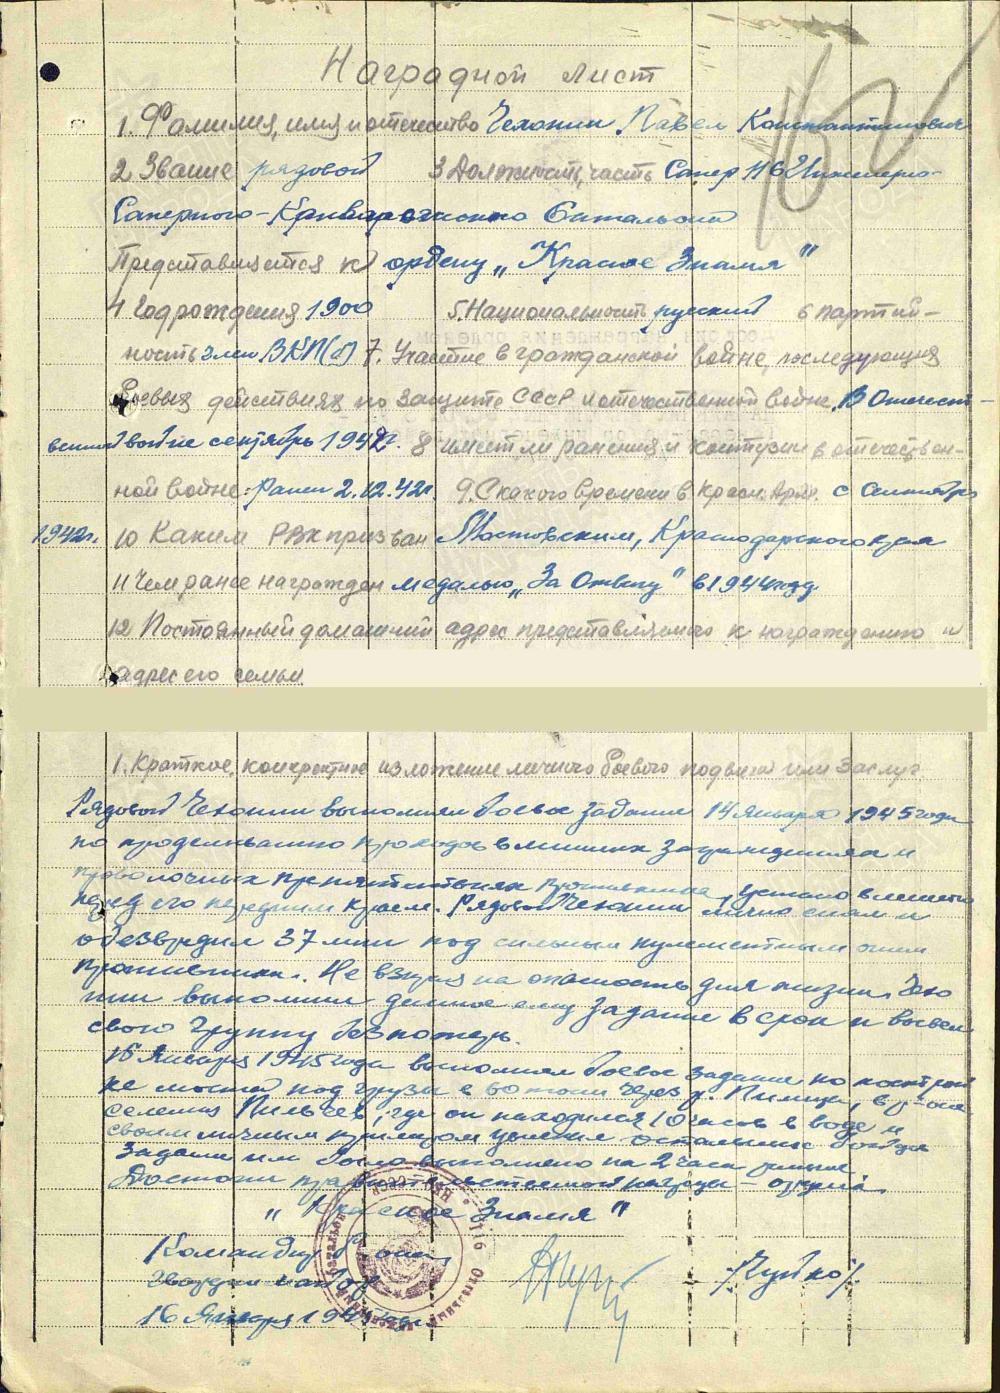 Наградной лист
1. Фамилия, имя и отчество Чехонин Павел Константинович
2 Звание рядовой 3 Должность, часть Сапер 116 Инженерно-
Саперного-Краснознаменного Батальона
Представляется к ордену „Красное Знамя"
4 Год рождения 1900 5. Национальность русский 6 партий-
ность член ВКП(б) 7. Участие в гражданской войне, последующих
боевых действиях по защите СССР и отечественной войне. В Отечест-
венной войне сентябрь 1942г. 8 имеет ли ранения и контузии в отечествен-
ной войне: Ранен 2.12.42г. 9. С какого времени в Красн. Арм. с Сентября
1942г. 10 Каким РВК призван Мостовским, Краснодарского края
11 Чем ранее награжден медалью „За Отвагу" в 1944 году
12 Постоянный домашний адрес представляемого к награждению и
адрес его семьи
1. Краткое, конкретное изложение личного боевого подвига или заслуг
Рядовой Чехонин выполняя боевое задание 14 Января 1945 года
по проделыванию проходов в минных заграждениях и
проволочных препятствиях противника, установленных
перед его передним краем. Рядовой Чехонин лично снял и
обезвредил 37 мин под сильным пулеметным огнем
противника. Не взирая на опасность для жизни Чехо
нин выполнил данное ему задание в срок и вывел
свою группу без потерь.
15 Января 1945 года выполняя боевое задание по построй
ке моста под грузы в 60 тонн через р. Пилица, в р-оне
селения Пильчев, где он находился 10 часов в воде и
своим личным примером увлекал остальных бойцов
Задание им было выполнено на 2 часа раньше
Достоин правительственной награды – ордена
„Красное Знамя"
Командир Бат
гвардии майор /Чуйко/
16 Января 1945 года